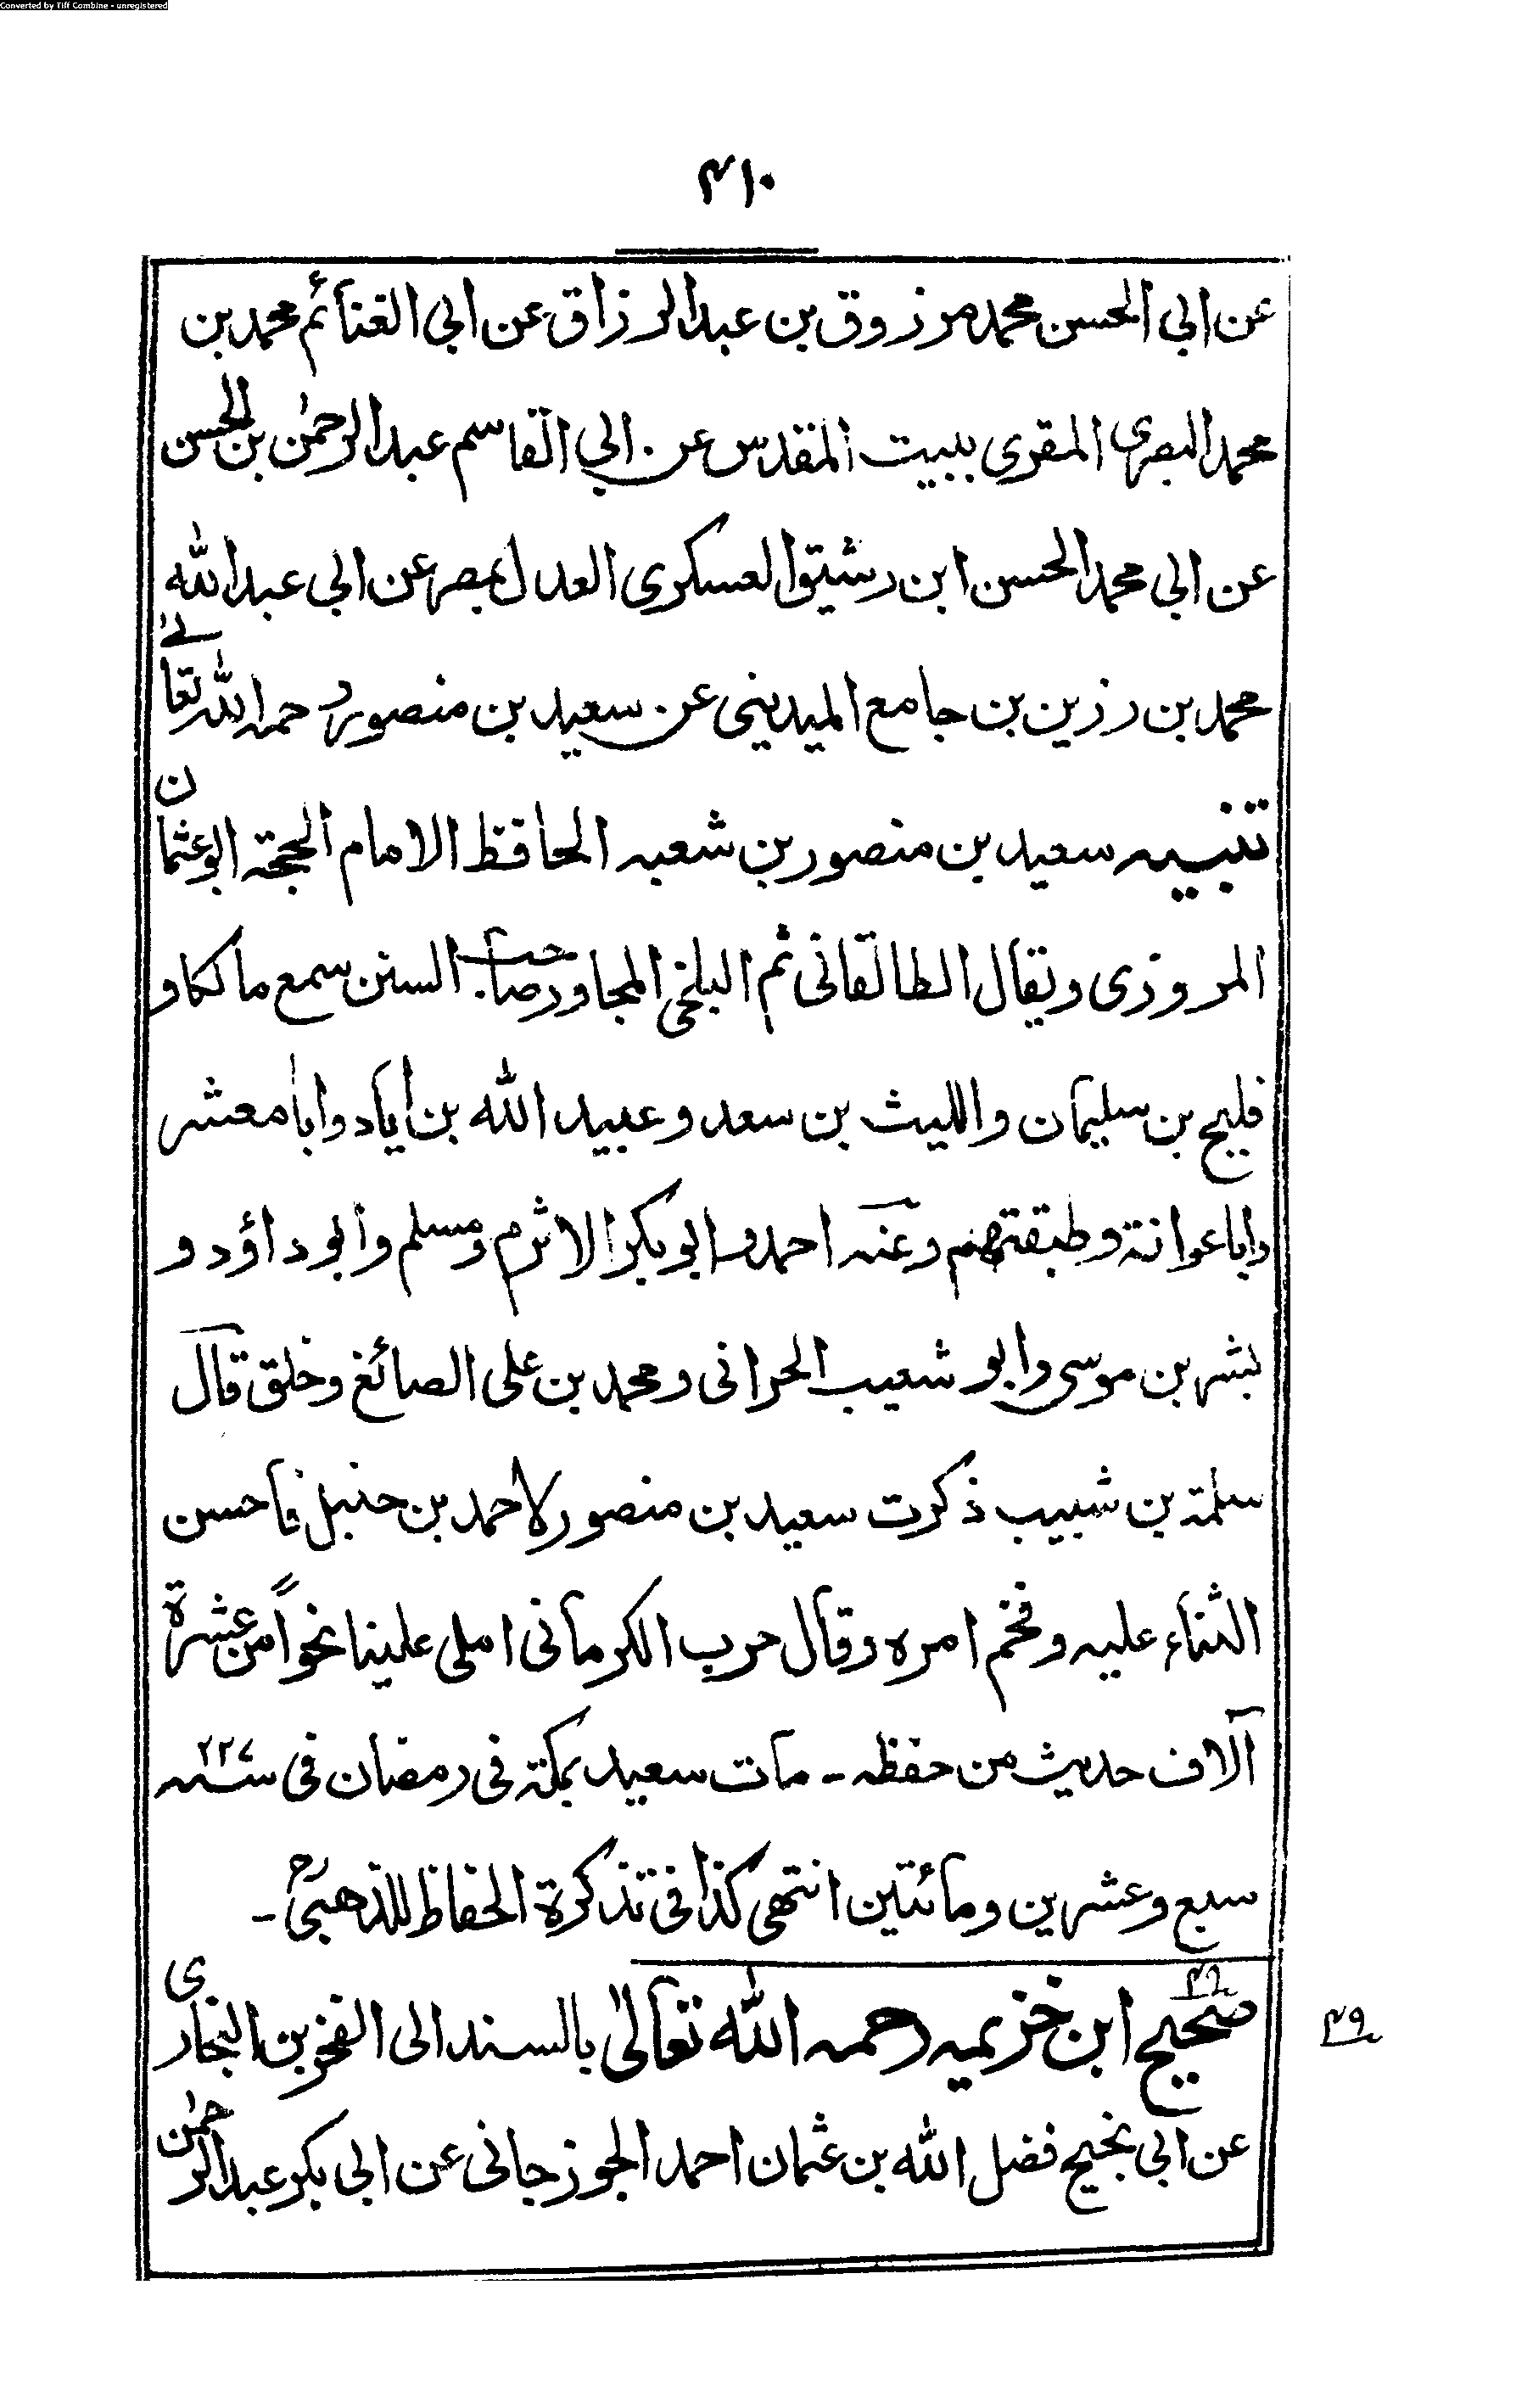 Converted by Tiff Combine - unregistered
۴۱۰
عن ابی الحسن محمد مرزوق بن عبدالرزاق عن ابی الغنائم محمد بن
محمد البصری المقری ببیت المقدس عن ابی القاسم عبدالرحمٰن بن الحسن
عن ابی محمد الحسن ابن رشیق العسکری العدل بمصر عن ابی عبدالله
محمد بن رزین بن جامع المیدینی عن سعید بن منصور رحمہ الله تعالٰے
تنبیہ سعید بن منصور بن شعبہ الحافظ الامام الحجۃ ابو عثمان
المروزی ویقال الطالقانی ثم البلخی المجاور صاحب السنن سمع مالکا و
فلیح بن سلیمان واللیث بن سعد و عبید الله بن ایاد وابا معشر
وابا عوانۃ وطبقتهم وعنہ احمد و ابوبکر الاثرم ومسلم وابو داؤد و
بشر بن موسی وابو شعیب الحرانی ومحمد بن علی الصائغ وخلق قال
سلمۃ بن شبیب ذکرت سعید بن منصور لاحمد بن حنبل فاحسن
الثناء علیہ وفخم امرہ وقال حرب الکرمانی املی علینا نحواً من عشرة
آلاف حدیث من حفظہ ۔ مات سعید بمکۃ فی رمضان فی سنہ ۲۲۷
سبع وعشرین ومائتین انتهی کذا فی تذکرة الحفاظ للذهبیؒ ۔
۴۹
صحیح ابن خزیمہ رحمہ الله تعالٰی بالسند الی الفخر بن البخاری
۴۹
عن ابی نجیح فضل الله بن عثمان احمد الجوزجانی عن ابی بکر عبدالرحمٰن